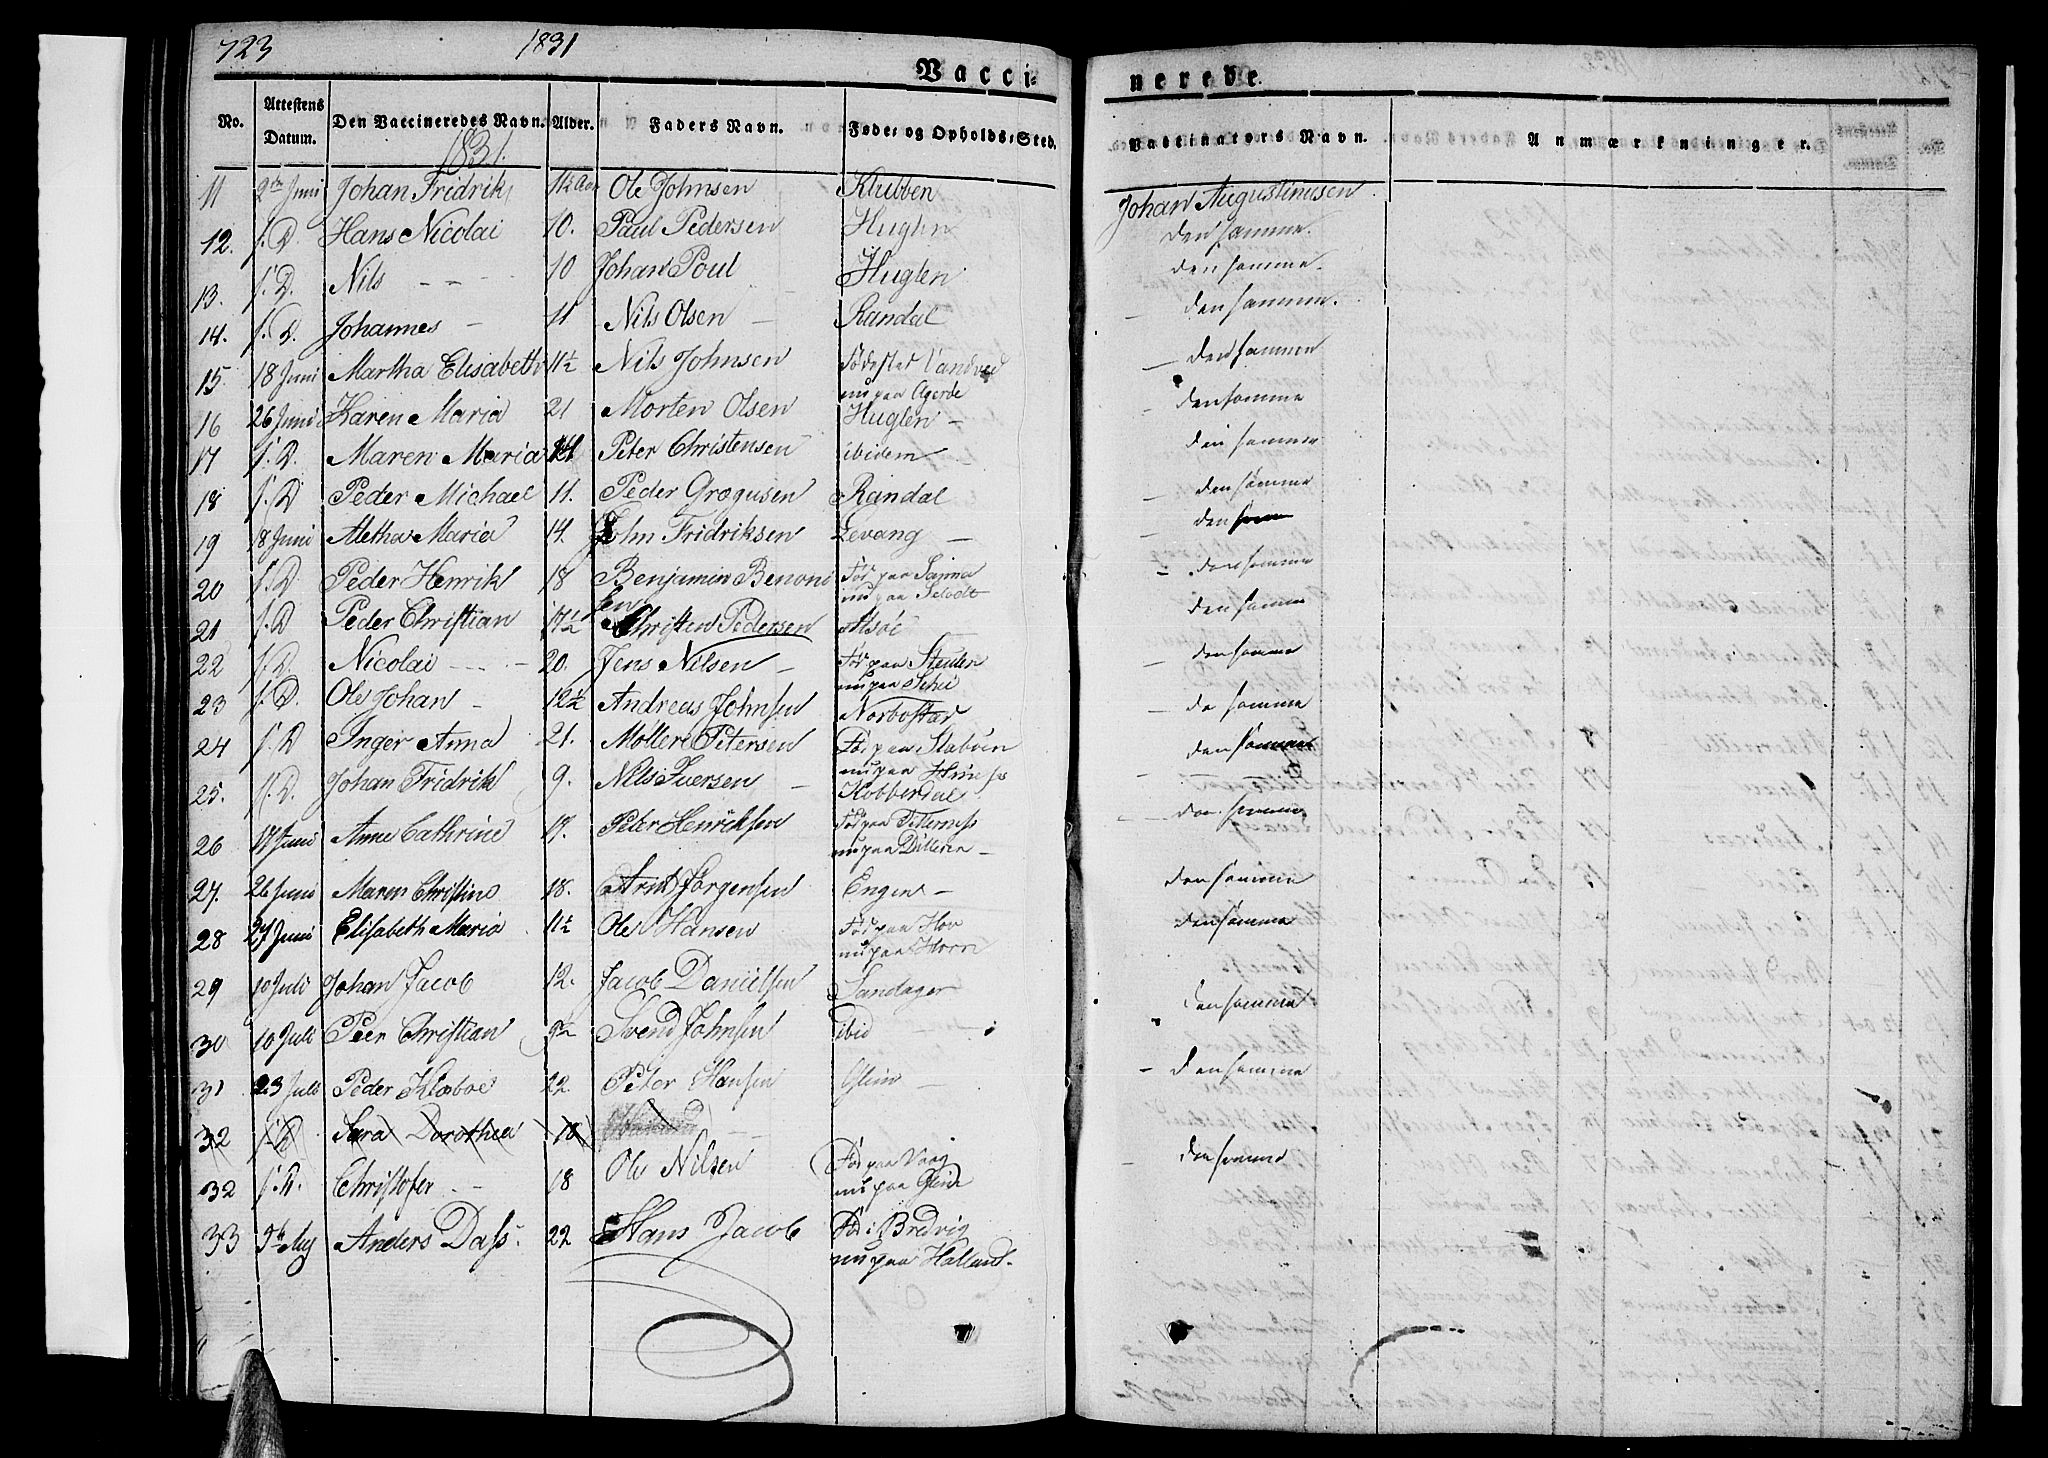 723 1831
Vacci- nerede.
No. Attestens Datum. Den Vaccineredes Navn. Alder. Faders Navn. Føde- og Opholds-Sted. Vaccinators Navn. Anmærkninger.
1831.
11 2den Juni Johan Fridrik 11½ Aar Ole Johnsen Klubben Johan Augustinusen
12. s. D. Hans Nicolai 10. Paul Pedersen Huglen den samme.
13. s. D. Nils - - 10 Johan Poul Huglen den samme.
14. s. D. Johannes - 11 Nils Olsen - Randal - den samme.
15. 18 Juni Martha Elisabeth 11½ Nils Johnsen Fødested Vandved - den samme
nu paa Agerde
16 26 Juni Karen Maria 21 Morten Olsen Huglen - - den samme
17 s. D. Maren Maria Peter Christensen ibidem - den samme
18 s. D Peder Michael 11. Peder Gregusen Randal - den samme
19 18 Juni Aletha Maria 14. John Fridriksen Levang - - den
20 s. D Peder Henrik 18 Benjamin Benoni Fød paa Sanna - den samme
sen nu paa Selvdt
21 s. D Peder Christian 17½ Christen Pedersen Alsøe den samme
22 s. D. Nicolai - - - 20. Jens Nilsen - Fød paa Steulen - den samme
nu paa Schei
23 s. D. Ole Johan - 12½ Andreas Johnsen Norbostad - de samme
24 s. D Inger Anna 21. Møllere Petersen Fød paa Stabøen den samme
nu paa Høinæs
25. s. D. Johan Fridrik 9. Nils Iversen - Kobberdal - den samme
26 17 Juni Anne Cathrine 19. Peter Henriksen Fød paa Ditternæs
nu paa Ditteren -
27. 26 Juni Maren Christine 18. Arnt Jørgensen Engen - den samme
28 27 Juni Elisabeth Maria 11½ Ole Hansen Fød paa Hov den samme
nu paa Horn
29 10 Juli Johan Jacob 12. Jacob Danielsen Sandager den samme
30 10 Juli Peer Christian 9½ Svend Johnsen ibid
31 23 Juli Peder Klæboe 22 Peter Hansen Glein - - den samme
32 s. D Sara Dorothea 10
32 s. D. Christofer - - 18 Ole Nilsen Fød paa Vaag - den samme
nu paa Glein
33 5te Aug Anders Dass. 22 Hans Jacob Fød i Bredvig
nu paa Halland.